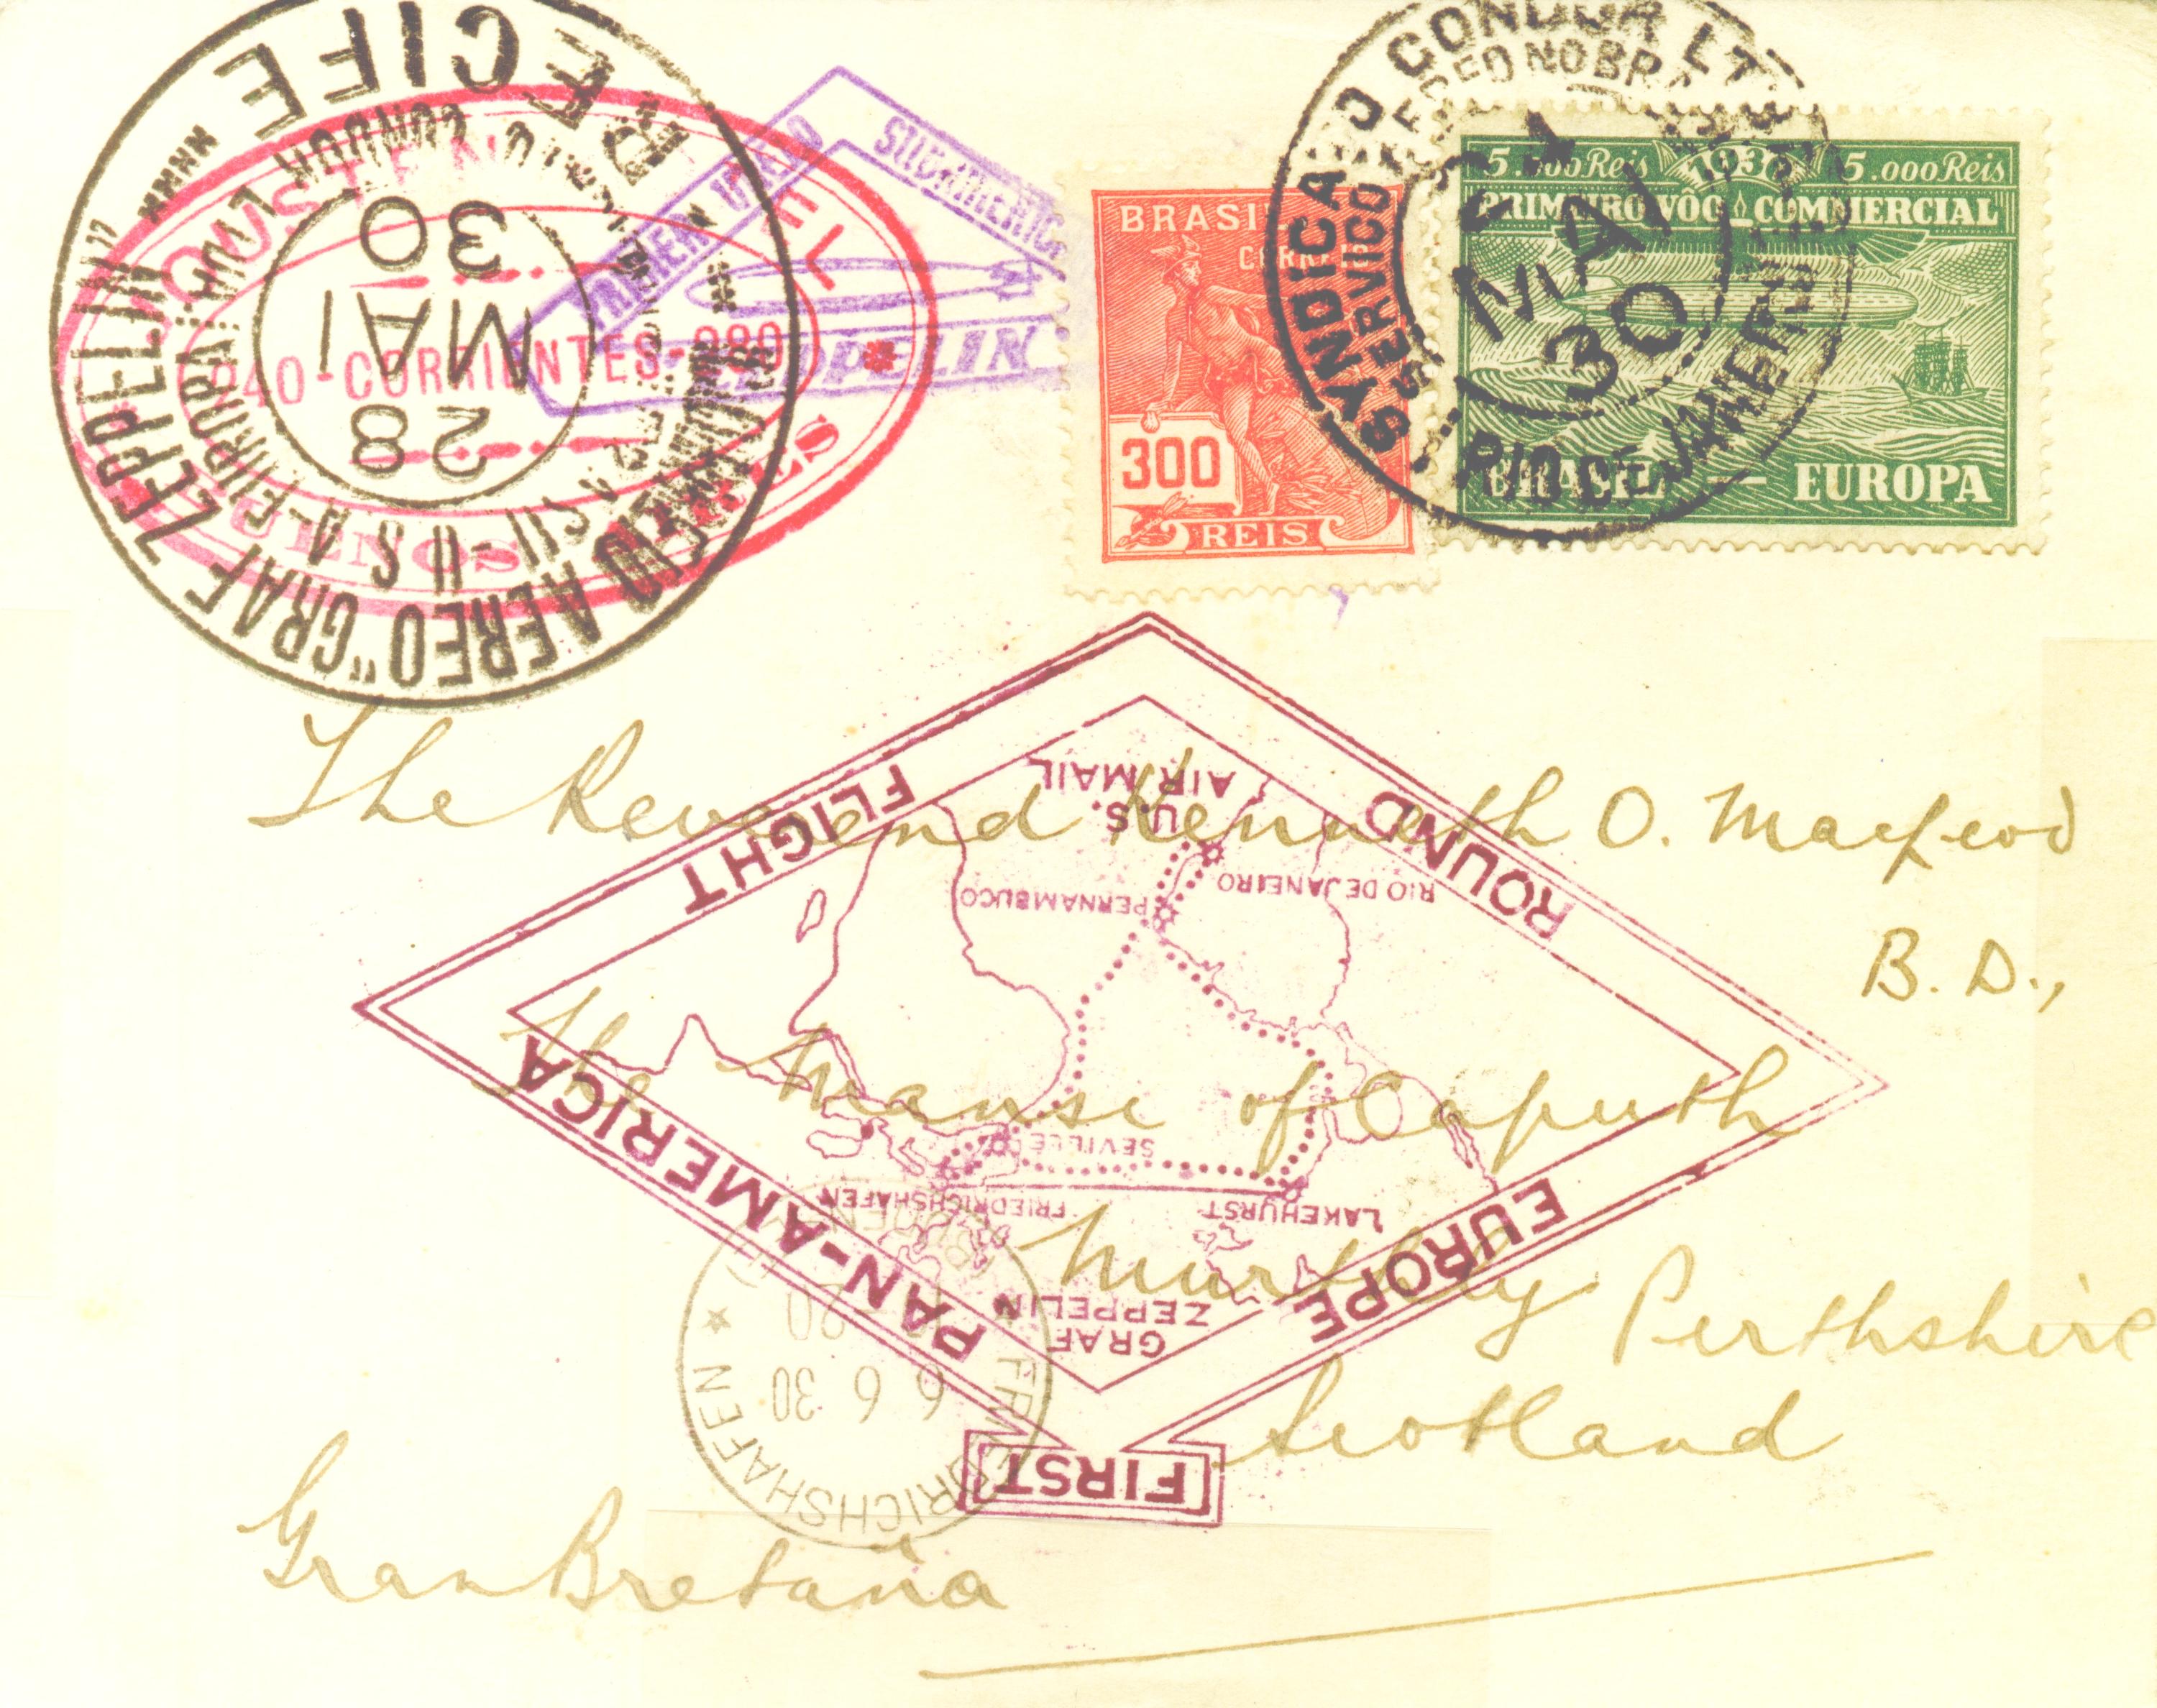 RECIFE
CORREIO AEREO "GRAF ZEPPELIN"
CONDOR LTDA.
U.S.A-EUROPA
28
MAI
30
HOUSTEN
EL
CORRIENTES
BUENOS
PRIMER VUELO
SUDAMERICA
ZEPPELIN
BRASIL
CORREIO
300
REIS
SYNDICATO CONDOR LTDA
SERVIÇO AEREO NO BRASIL
MAI
30
RIO DE JANEIRO
5.000 Reis 1930 5.000 Reis
PRIMEIRO VÔO COMMERCIAL
BRASIL — EUROPA
The Reverend Kenneth O. Macleod
B. D.,
The Manse of Caputh
Murthly Perthshire
Scotland
Gran Bretaña
FIRST
EUROPE PAN-AMERICA
ROUND FLIGHT
GRAF
ZEPPELIN
LAKEHURST
FRIEDRICHSHAFEN
SEVILLE
PERNAMBUCO
RIO DE JANEIRO
U.S.
AIR MAIL
FRIEDRICHSHAFEN
6 6 30
20